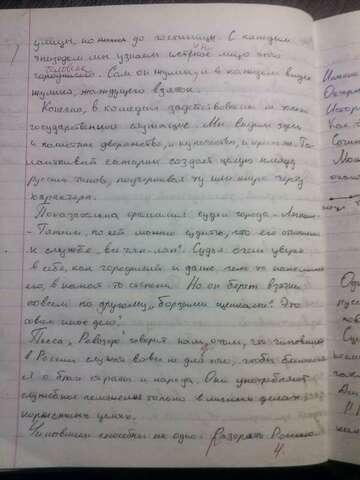 улицы, но жила до гостиницы. С каждым
эпизодом мы узнаем истинное лицо этого
человека
городничего. Сам он жулик, и в каждом видит
жулика, жаждущего взятки.
Конечно, в комедии задействованы и такие
государственные служащие. Мы видим здесь
и поместное дворянство, и купечество, и крестьян. Та-
лантливый сатирик создает целую плеяду
русских типов, подчеркивая ту или иную черту
характера.
Показательна фамилия судьи города - Ляпкин-
-Тяпкин, по ней можно судить, что его отношение
к службе, все "тяп-ляп". Судья очень уверен
в себе, как городничий и даже, чем-то напоминает
его, в какой-то степени. Но он берет взятки
совсем по другому, "борзыми щенками". Это
совсем иное дело!
Пьеса "Ревизор" говорит нам, о том, что чиновники
в России служат вовсе не для того, чтобы беспокоит
ся о благе страны и народа. Они употребляют
служебное положение только в личных делах
корыстных целях.
Чиновники способны на одно: Разорять Россию
4.